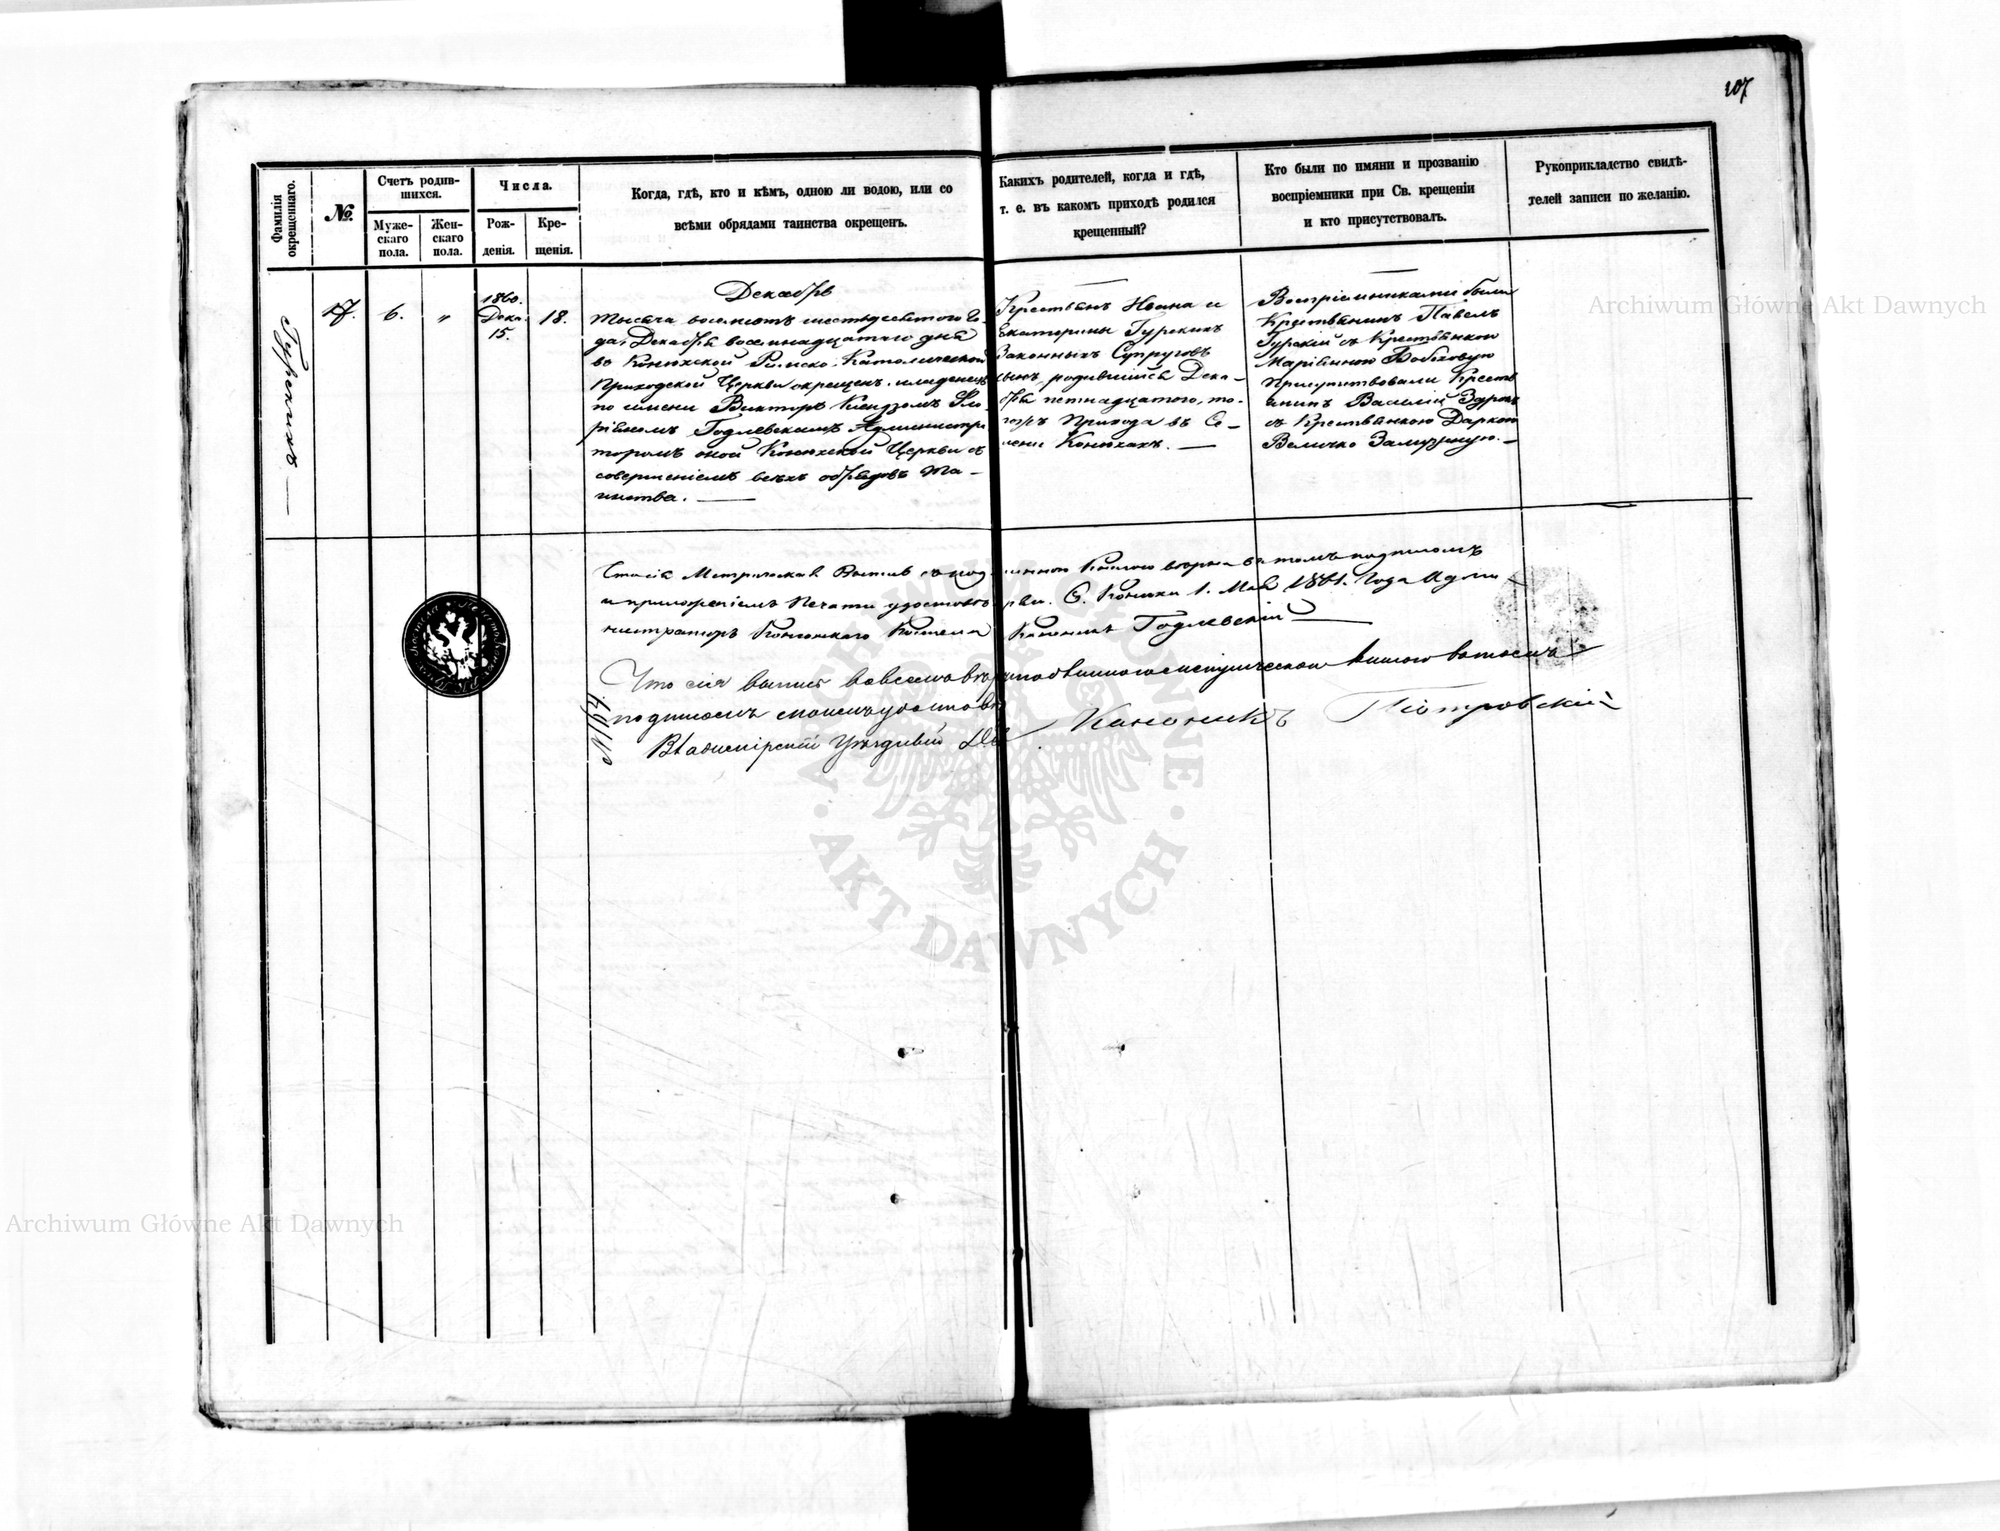 107
Фамилія окрещеннаго.
№.
Счетъ родив-
шихся.
Муже-
скаго
пола.
Жен-
скаго
пола.
Числа.
Рож-
денія.
Кре-
щенія.
Когда, гдѣ, кто и кѣмъ, одною ли водою, или со
всѣми обрядами таинства окрещенъ.
Какихъ родителей, когда и гдѣ,
т. е. въ какомъ приходѣ родился
крещенный?
Кто были по имяни и прозванію
воспріемники при Св. крещеніи
и кто присутствовалъ.
Рукоприкладство свидѣ-
телей записи по желанію.
17.
6.
"
1860.
Дека.
15.
18.
Декабрь
Тысяча восемьсотъ шестьдесятого Го-
да, Декабря восемнадцатого дня
въ Конюхской Римско-Католической
Приходской Церкви окрещенъ младенецъ
по имени Викторъ Ксендзомъ Фло-
ріаномъ Годлевскимъ Администра
торомъ оной Конюхской Церкви съ
совершеніемъ всѣхъ обрядовъ Та-
инства.
Крестьянъ Ивана и
Екатерины Гурскихъ
Законныхъ Супруговъ
сынъ, родившійся Дека-
бря петнадцатого, то-
гожъ Прихода въ Се-
леніи Конюхахъ.
Воспріемниками были
Крестьянинъ Павелъ
Гурскій съ Крестьянкою
Маріянною
Присутствовали Крестья
нинъ Василій
съ Крестьянкою
Величко Замужнею.
Сія Метрическая Выпись съ подлинною Книгою вѣрна въ томъ подписомъ
и приложеніемъ Печати удостовѣряю. С. Конюхи 1. Мая 1861. Года Адми-
нистраторъ Конюхского Костела Каноникъ Годлевскій
Что сія выпись во всемъ вѣрна
подписомъ моимъ удостовѣряю
Владимірскій Уѣздный Каноникъ Піотровскій
Archiwum Główne Akt Dawnych
Archiwum Główne Akt Dawnych
ARCHIWUM GŁÓWNE
AKT DAWNYCH